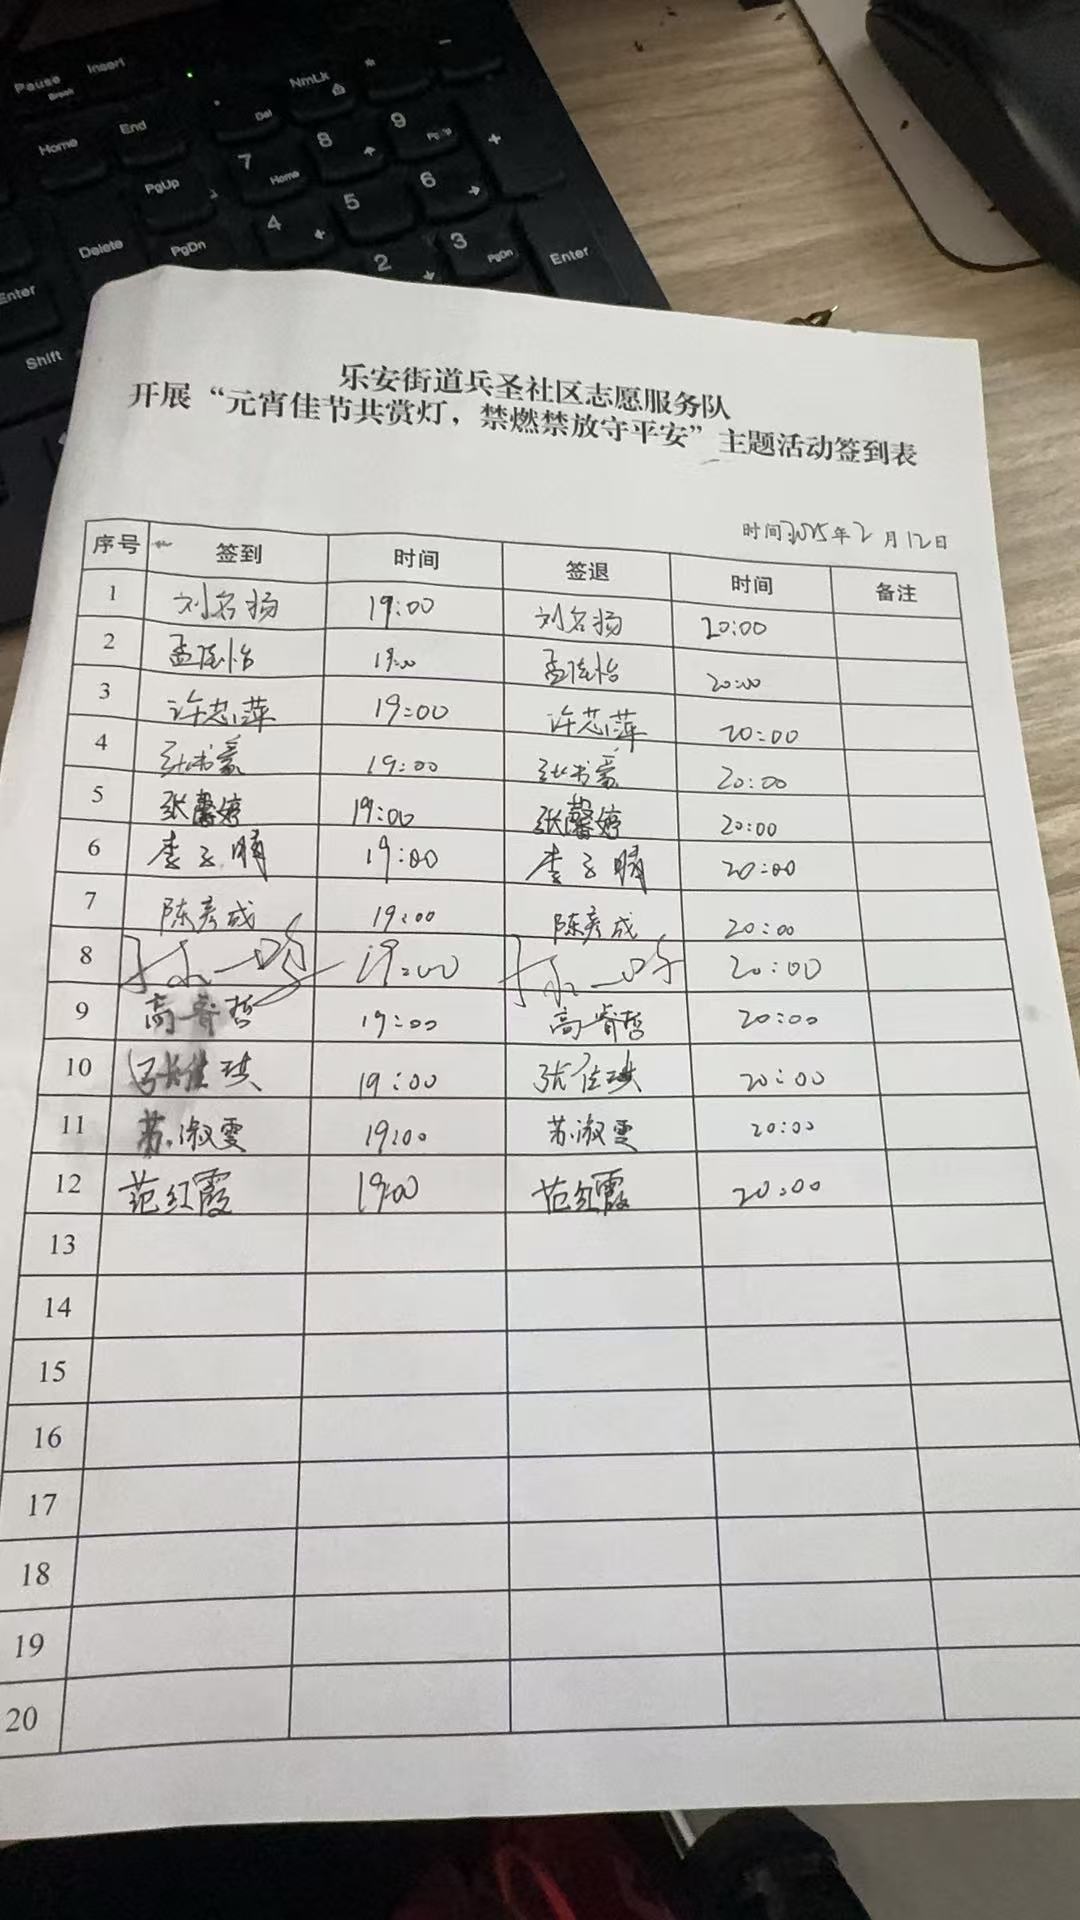 Pause Break
Insert
NmLk
*
-
Home
End
Del
7 Home
8
9 PgUp
+
PgUp
4
5
6
Delete
PgDn
2
3 PgDn
Enter
Enter
Shift
乐安街道兵圣社区志愿服务队
开展“元宵佳节共赏灯，禁燃禁放守平安”主题活动签到表
时间2025年2月12日
序号 签到 时间 签退 时间 备注
1 刘名扬 19:00 刘名扬 20:00
2 孟佳怡 19:00 孟佳怡 20:00
3 许芯萍 19:00 许芯萍 20:00
4 19:00 20:00
5 张馨婷 19:00 张馨婷 20:00
6 李子晴 19:00 李子晴 20:00
7 陈彦成 19:00 陈彦成 20:00
8 19:00 20:00
9 高睿哲 19:00 高睿哲 20:00
10 张佳琪 19:00 张佳琪 20:00
11 苏淑雯 19:00 苏淑雯 20:00
12 范红霞 19:00 范红霞 20:00
13
14
15
16
17
18
19
20